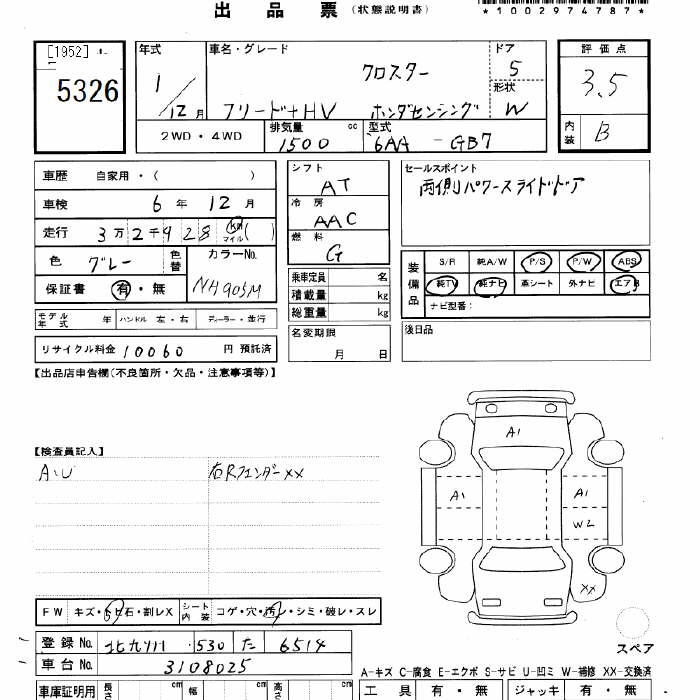 出品票 (状態説明書) *1002974787*
[1952]
5326
年式 1/12月
車名・グレード クロスター
フリード+HV ホンダセンシング
ドア 5
形状 W
評価点 3.5
内装 B
2WD・4WD
排気量 1500 cc
型式 6AA-GB7
車歴 自家用・( )
車検 6年12月
走行 3万2千928 km マイル ( )
色 グレー 色替
カラーNo. NH905M
保証書 有・無
シフト AT
冷房 AAC
燃料 G
セールスポイント
両側パワースライドドア
乗車定員 名
積載量 kg
総重量 kg
装備品 S/R 純A/W P/S P/W ABS
純TV 純ナビ 革シート 外ナビ エアB
ナビ型番:
モデル年式 年 ハンドル 左・右 ディーラー・並行
名変期限 月 日
後日品
リサイクル料金 10060 円 預託済
【出品店申告欄(不良箇所・欠品・注意事項等)】
【検査員記入】
A・U 右Rフェンダーxx
A1
A1 A1
W2
XX
FW キズ・トビ石・割レX シート内装 コゲ・穴・汚レ・シミ・破レ・スレ
スペア
登録No. 北九州 530 た 6514
車台No. 3108025
A-キズ C-腐食 E-エクボ S-サビ U-凹ミ W-補修 XX-交換済
車庫証明用 長さ cm 幅 cm 高さ cm
工具 有・無 ジャッキ 有・無